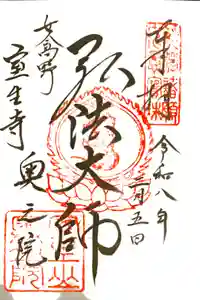 奉拝
令和八年
三月五日
弘法大師
女高野
室生寺
奥之院